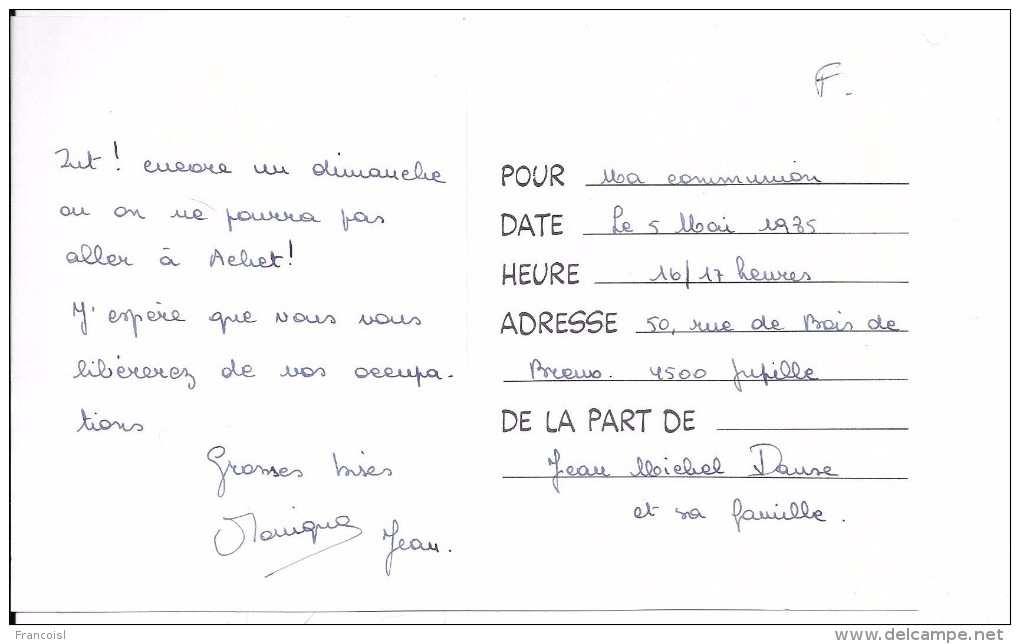 F.
Zut ! encore un dimanche
ou on ne pourra pas
aller à Achet !
J'espère que vous vous
libérerez de vos occupa-
tions
Grosses bises
Monique Jean.
POUR Ma communion
DATE Le 5 Mai 1985
HEURE 16/17 heures
ADRESSE 50, rue de Bois de
Breux. 4500 Jupille
DE LA PART DE
Jean Michel Danse
et sa famille.
Francoisl
www.delcampe.net